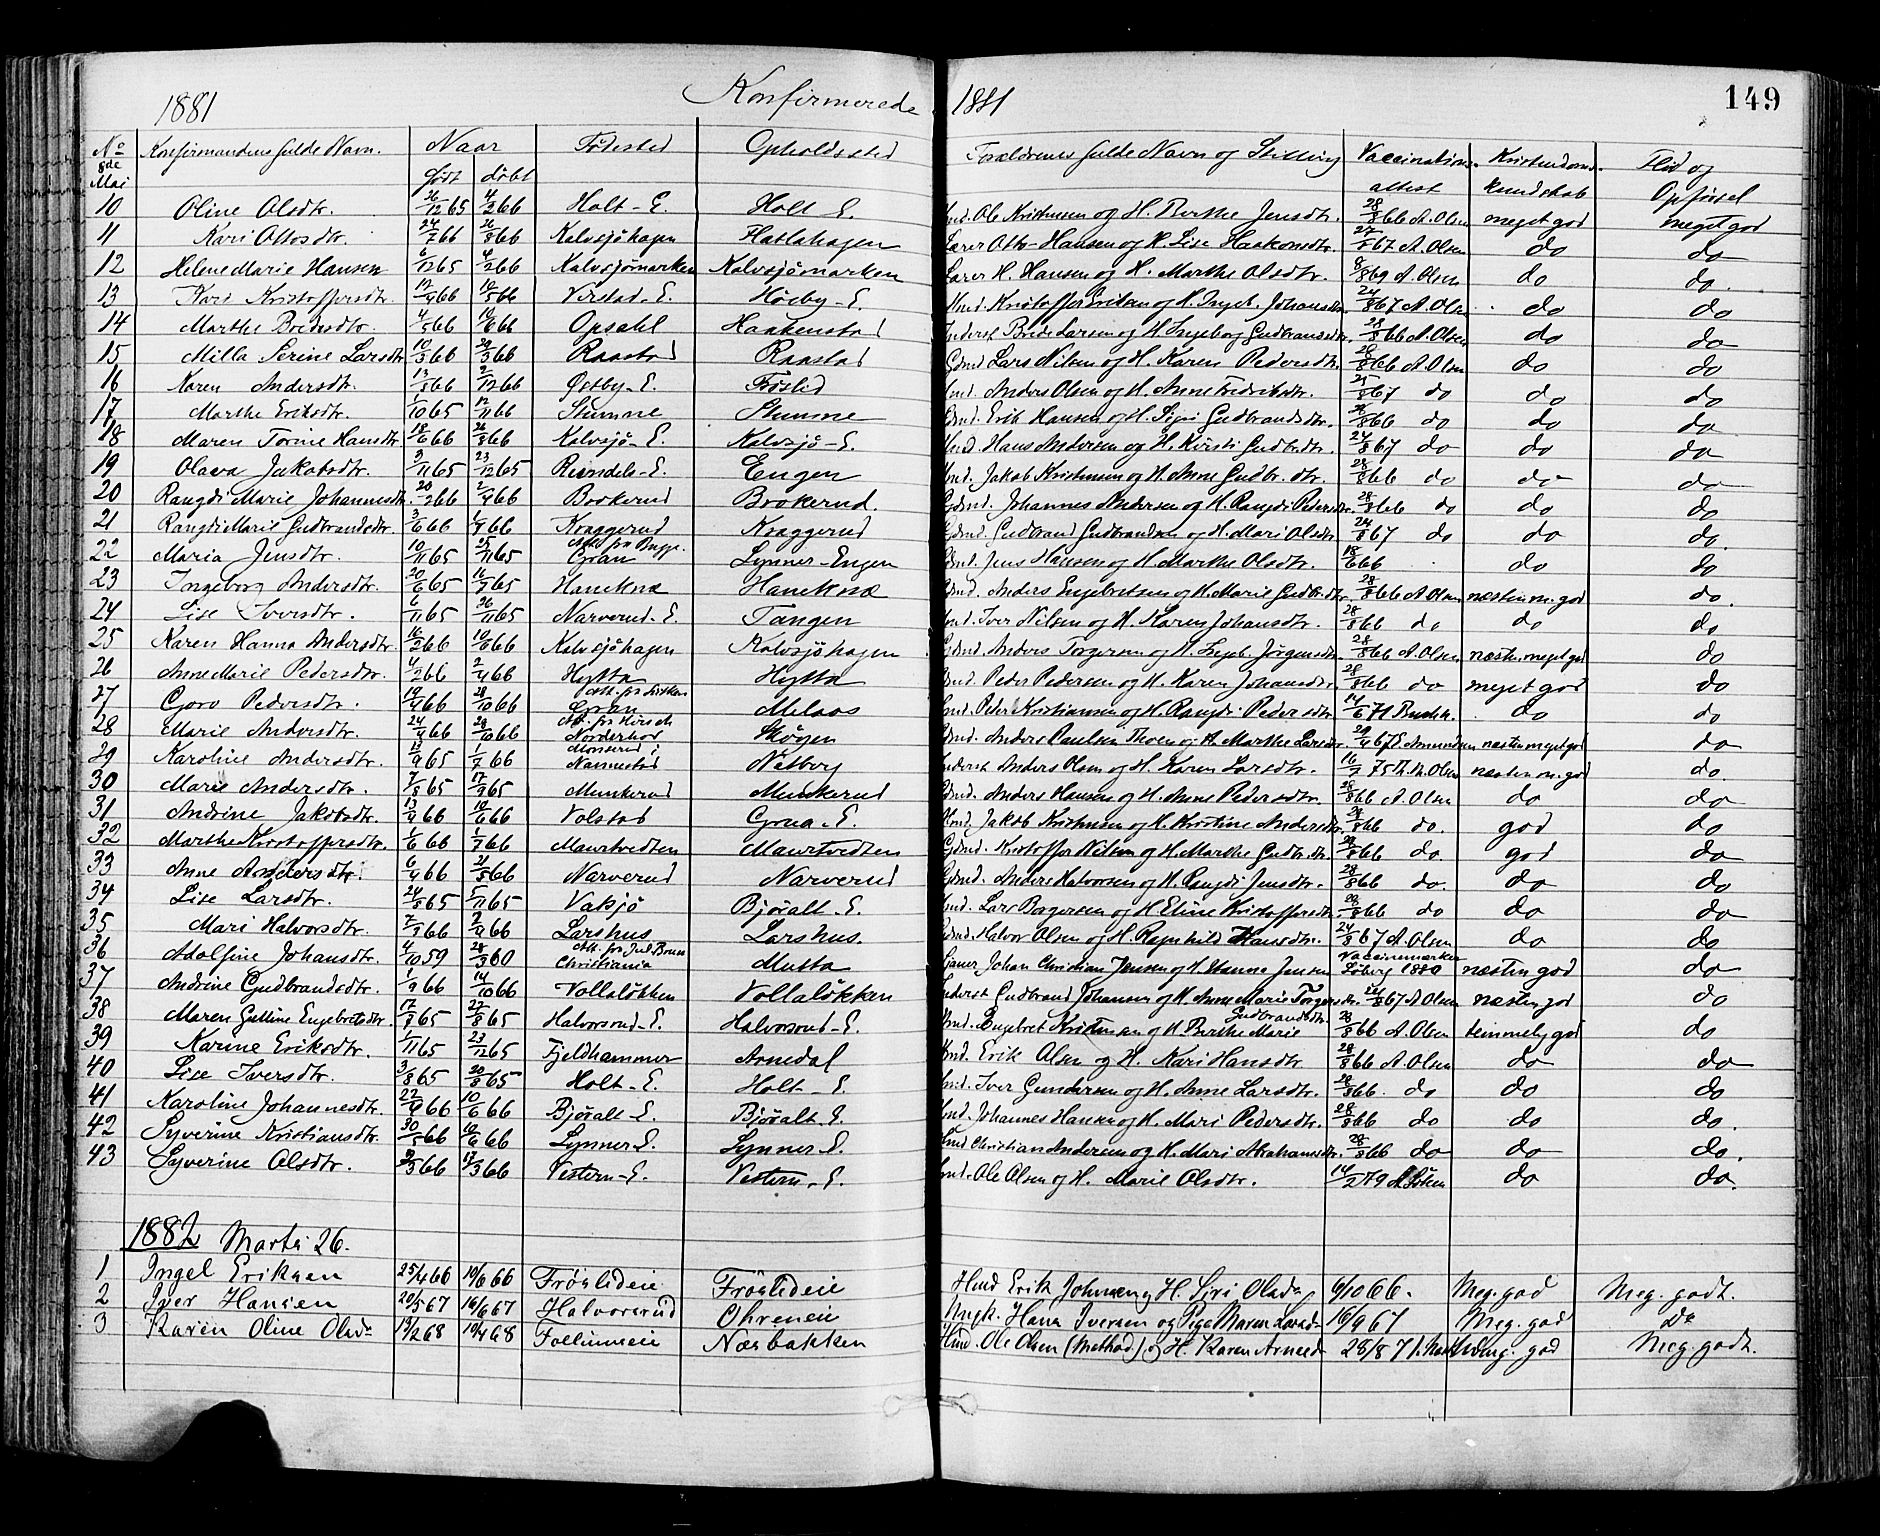 1881 Konfirmerede 1881 149
No Konfirmandens fulde Navn. Naar Fødested Opholdssted Forældrenes fulde Navn og Stilling Vaccinations- Kristendoms- Flid og
8de Mai født døbt attest kundskab Opførsel
10 Oline Olsdtr. 26/12 65 4/2 66 Holt-E. Holt-E. Ole Kristensen og H. Berthe Jensdtr. 28/8 66 A. Olsen meget god meget god
11 Kari Ottosdtr. 24/7 66 26/8 66 Kalvsjöhagen Flatlahagen Otto Hansen og H. Lise Haakonsdtr. 67 A. Olsen do do
12 Helene Marie Hansen 6/12 65 4/2 66 Kalvsjömarken Kalvsjömarken H. Hansen og H. Marthe Olsdtr. 8/8 69 A. Olsen do do.
13 Kari Kristoffersdtr. 17/4 66 10/5 66 Virstad-E. Höiby-E. Kristoffer Eriksen og H. Ingeb. Johansdtr. 24/8 67 A. Olsen do do
14 Marthe Bredesdtr. 4/5 66 10/6 66 Opsahl Haakenstad Brede Larsen og H. Ingeborg Gudbrandsdtr. 28/8 66 A. Olsen do do
15 Milla Serine Larsdtr 10/3 66 29/3 66 Raastad Raastad Gdmd. Lars Nilsen og H. Karen Pedersdtr. 28/8 66 A. Olsen do do
16 Karen Andersdtr. 13/8 66 2/12 66 Østby-E. Fröslid Anders Olsen og H. Anne Fredriksdtr. 25/8 67 do do do
17 Marthe Eriksdtr. 1/10 65 12/11 66 Stumne Stumne Gdmd. Erik Hansen og H. Sigri Gudbrandsdtr. 28/8 66 do do do
18 Maren Torine Hansdtr 18/6 66 26/8 66 Kalvsjö-E. Kalvsjö-E. Hans Andersen og H. Kirsti Gudbr.dtr. 24/8 67 do do do
19 Olava Jakobsdtr. 3/11 65 23/12 65 Reinsdals-E. Engen Jakob Kristensen og H. Anne Gudbr. dtr. 28/8 66 do do do
20 Rangdi Marie Johannesdtr. 20/2 66 2/4 66 Brokerud Brokerud. Gdmd. Johannes Andersen og H. Rangdi Pedersdtr. 28/8 66 do do do
21 Rangdi Marie Gudbrandsdtr. 3/6 66 1/7 66 Kraggerud Kraggerud Gdmd. Gudbrand Gudbrandsen og H. Mari Olsdtr. 24/8 67 do do do.
22 Maria Jensdtr. 10/11 65 25/11 65 Att. fra Gran Lynner-Engen Jens Hansen og H. Marthe Olsdtr. 18/6 66 do do
23 Ingeborg Andersdtr. 20/6 65 16/7 65 Haneknæ Haneknæ Gdmd. Anders Engebretsen og H. Marie Gudbr.dtr. 28/8 66 A. Olsen næsten m. god do.
24 Lise Iversdtr. 6/11 65 26/11 65 Narverud-E. Tangen Iver Nilsen og H. Karen Johansdtr. 28/8 66 do do do
25 Karen Hanna Andersdtr. 16/2 66 10/6 66 Kalvsjöhagen Kalvsjöhagen Gdmd. Anders Torgersen og H. Ingeb. Jörgensdtr. 28/8 66 A. Olsen næsten meget god do
26 Anne Marie Pedersdtr. 4/2 66 2/4 66 Hytta Hytta Peder Pedersen og H. Karen Johansdtr. 28/8 66 do meget god do
27 Goro Pedersdtr. 19/4 66 28/10 66 Att. fra Gran Melaas Peder Kristiansen og H. Rangdi Pedersdtr 14/6 71 do do
28 Marie Andersdtr. 24/4 66 29/10 66 Att. fra Norderhov Skögen Anders Paulsen Thoen og H. Marthe Larsdtr. 29/4 67 E. Amundsen næsten meget god do
29 Karoline Andersdtr. 13/9 65 1/7 66 Monserud i Nannestad Näsberg Inderst Anders Olsen og H. Karen Larsdtr. 16/7 75 Olsen næsten m. god do.
30 Marie Andersdtr. 7/8 65 17/9 65 Munkerud Munkerud Gdmd. Anders Hansen og H. Anne Pedersdtr. 28/8 66 A. Olsen do do
31 Andrine Jakobsdtr. 13/4 66 10/6 66 Volstad Grua-E. Jakob Kristensen og H. Kristine Andersdtr. 28/8 66 do. god do
32 Marthe Kristoffersdtr. 1/6 66 1/7 66 Maurtvedten Maurtvedten Gdmd. Kristoffer Nilsen og H. Marthe Gudbr. dtr. 28/8 66 do. god do
33 Anne Andersdtr. 6/4 66 21/5 66 Narverud Narverud Gdmd. Anders Halvorsen og H. Rangdi Jensdtr. 28/8 66 do. do do
34 Lise Larsdtr. 24/8 65 5/11 65 Vaksjö Björalt-E. Lars Borgersen og H. Eline Kristoffersdtr. 28/8 66 do do do
35 Mari Halvorsdtr. 7/3 66 2/4 66 Larshus Larshus. Halvor Olsen og H. Ragnhild Hansdtr. 24/8 67 A. Olsen do do
36 Adolfine Johansdtr. 4/10 59 28/3 60 Att. fra Jul. Bruun Christiania Mutta Johan Christian Jensen og H. Hanne Jensen Vaccinemærker Söberg 1880 næsten god do
37 Andrine Gudbrandsdtr. 1/9 66 14/10 66 Vollalökken Vollalökken Inderst Gudbrand Johansen og H. Anne Marie Torgersdtr. 24/8 67 A. Olsen næsten god do
38 Maren Galline Engebretsdtr. 17/7 65 27/8 65 Halvorsrud-E. Halvorsrud-E. Engebret Kristensen og H. Berthe Marie Gudbrandsdtr. 28/8 66 A. Olsen temmelig god do
39 Karine Eriksdtr. 1/11 65 23/12 65 Fjeldhammer Arnedal Erik Olsen og H. Kari Hansdtr 28/8 66 A. Olsen do do
40 Lise Iversdtr. 3/8 65 20/8 65 Holt-E. Holt-E. Iver Gundersen og H. Anne Larsdtr. 28/8 66. do do do
41 Karoline Johannesdtr. 22/4 66 10/6 66 Björalt-E. Björalt-E. Johannes Hansen og H. Mari Pedersdtr. 28/8 66 do do do
42 Syverine Kristiansdtr. 30/5 66 10/6 66 Lynner-E. Lynner-E. Christian Andersen og H. Mari Abrahamsdtr. 28/8 66 do do do.
43 Syverine Olsdtr. 2/3 66 17/3 66 Vestern-E. Vestern-E. Ole Olsen og H. Marie Olsdtr. 14/2 79 do do.
1882 Marts 26.
1 Ingel Eriksen 25/4 66 10/6 66 Fröslideie Fröslideie Hmd Erik Johnsen og H. Siri Olsdr 6/10 66. Meg. god Meg. godt.
2 Iver Hansen 20/5 67 16/6 67 Halvorsrud Ohreneie Ungk. Hans Iversen og Pige Maren Larsd- 16/9 67 Meg. god Do
3 Karen Oline Olsdr 19/2 68 10/4 68 Follinneie Næsbakken Hmd. Ole Olsen (Methad) og H. Karen Arnesdr 28/8 71. meg. god Meg. godt.